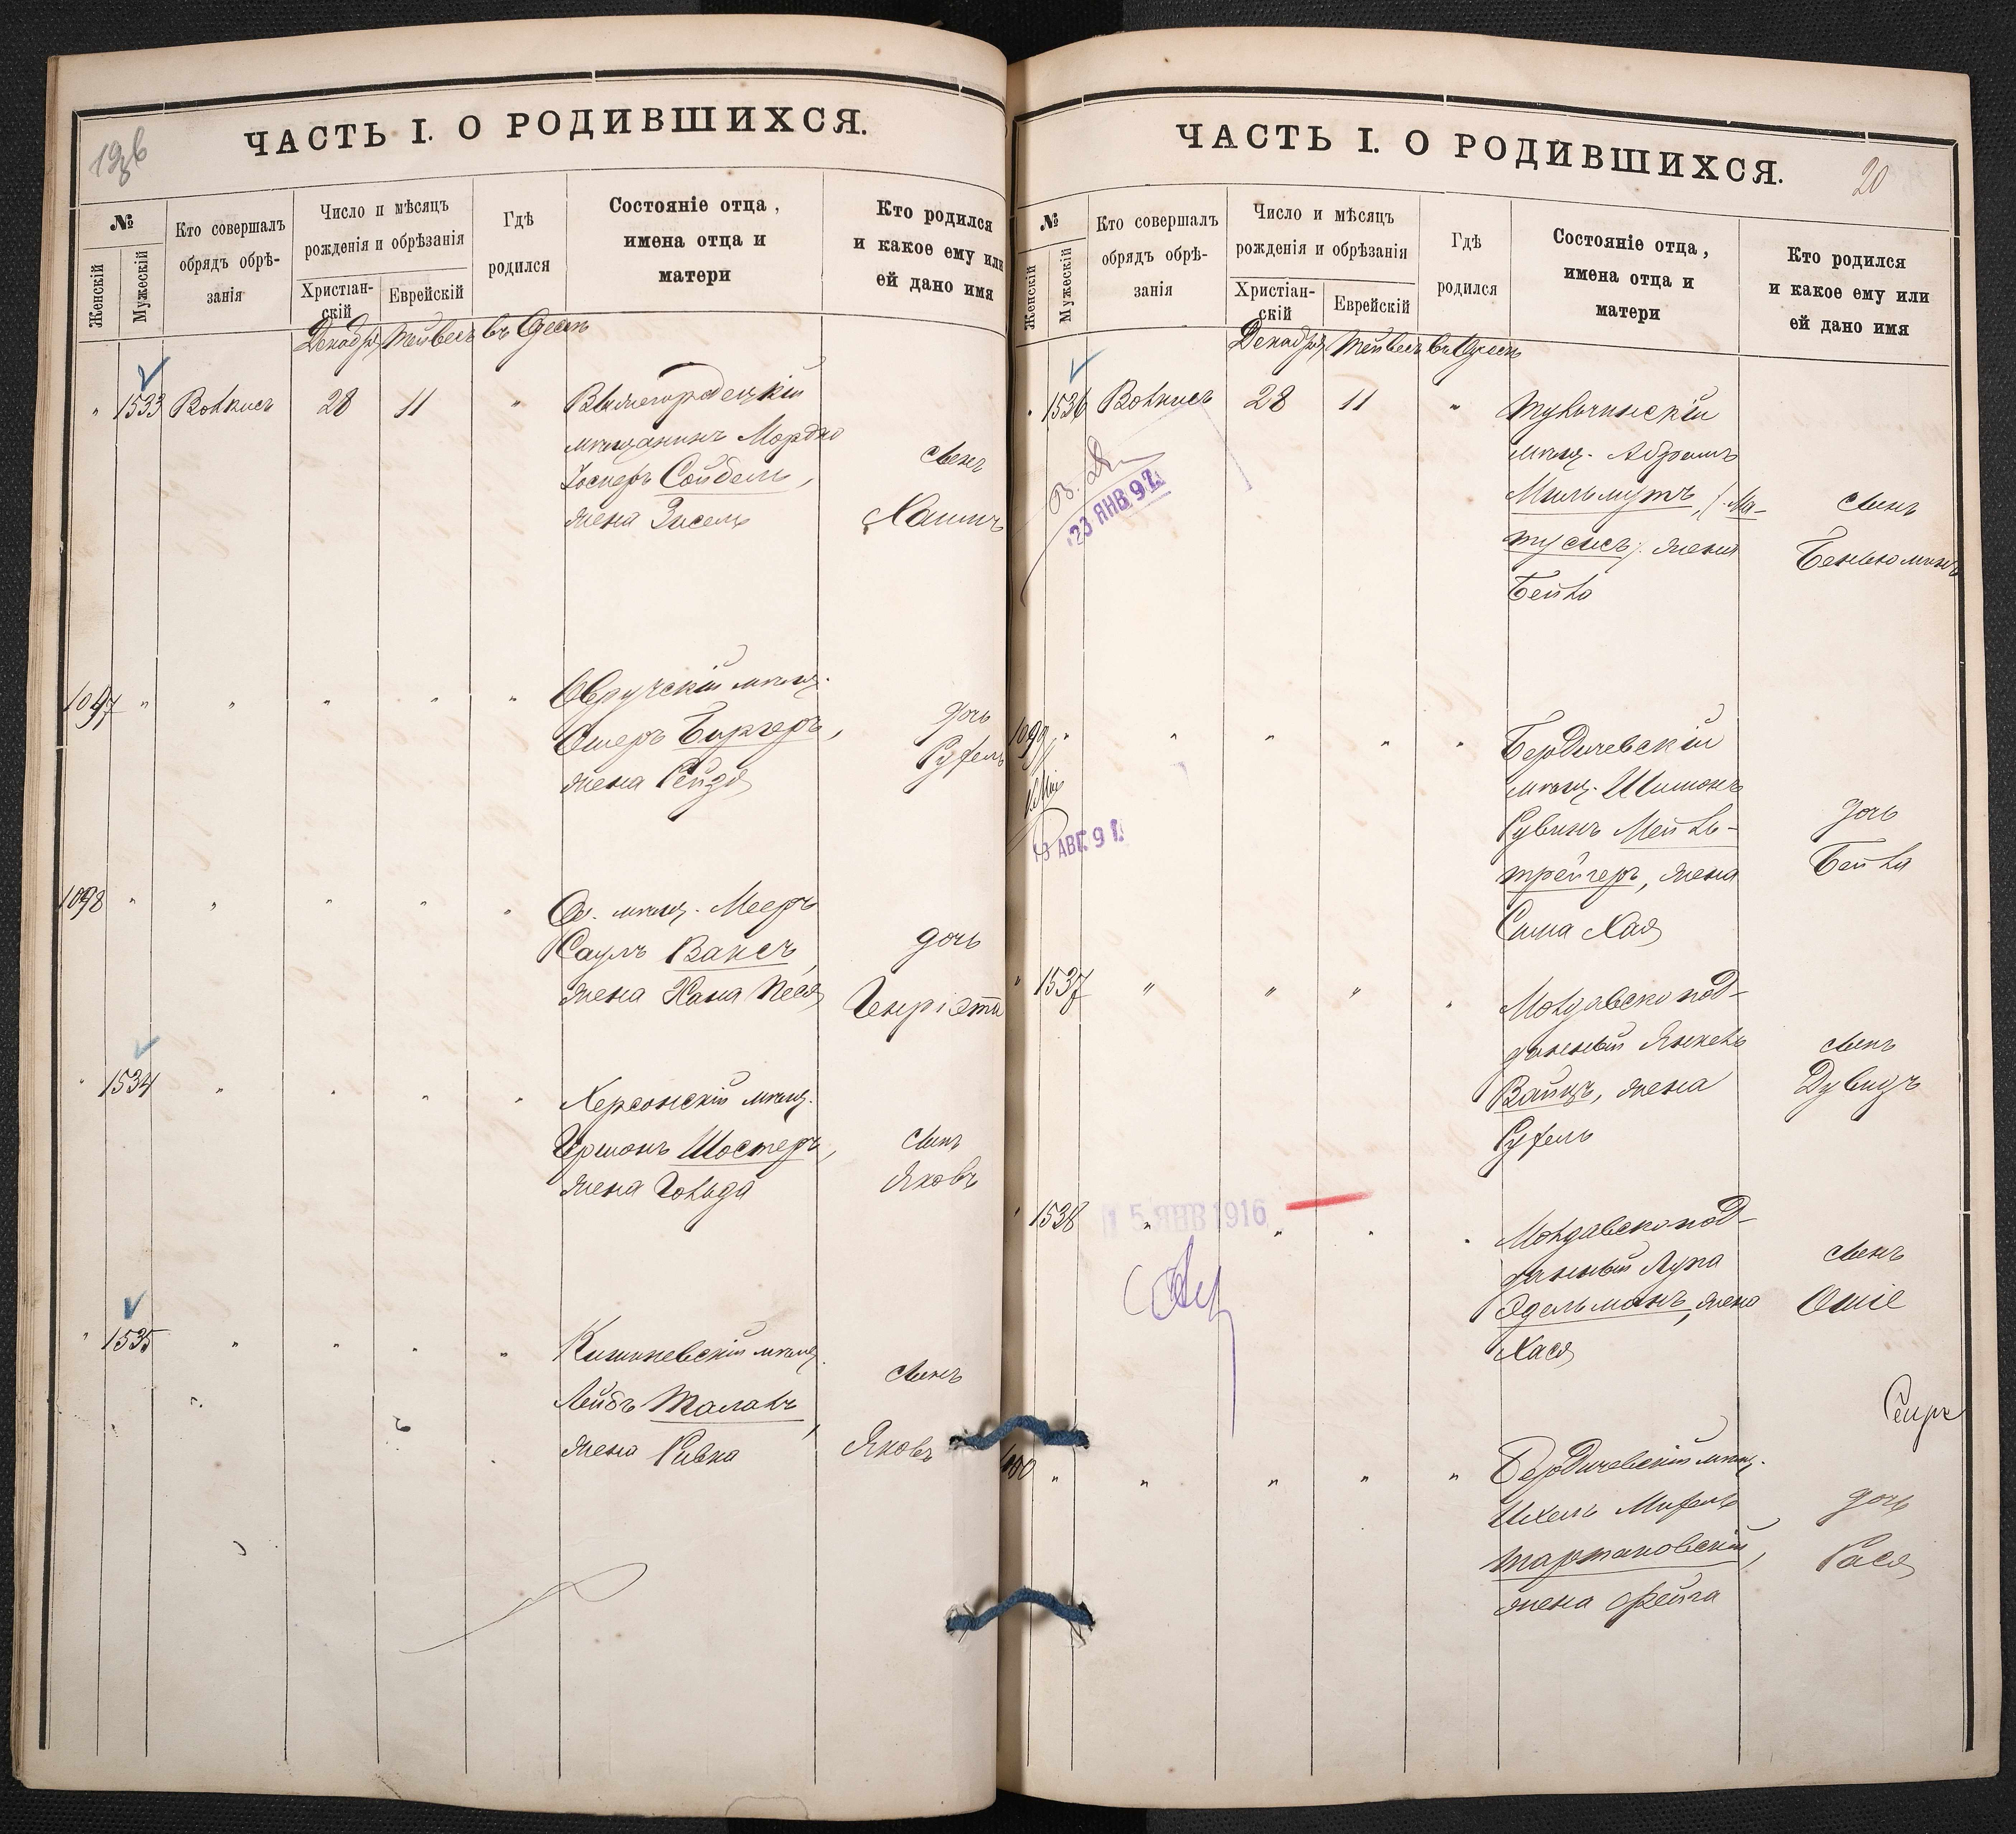 ЧАСТЬ I. О РОДИВШИХСЯ.
№
Женскій
Мужескій
Кто совершалъ
обрядъ обрѣ-
занія
Число и мѣсяцъ
рожденія и обрѣзанія
Христіан-
скій
Еврейскій
Гдѣ
родился
Состояніе отца,
имена отца и
матери
Кто родился
и какое ему или
ей дано имя
Декабря Тейвесъ въ Одессѣ
" 1533 Волкисъ 28 11 "
мѣщанинъ Мордко
Іосифъ Сойбель,
жена Зисель
сынъ
Хаимъ
1097 " " " " "
Овручскій мѣщ.
Ошеръ Бургеръ,
жена Рейзя
дочь
Рухель
1098 " " " " "
Од. мѣщ. Мееръ
Саулъ Ваксъ,
жена Хана Песя
дочь
Генріэтта
" 1534 " " " "
Херсонскій мѣщ.
Гершонъ Шостеръ,
жена Голида
сынъ
Яковъ
" 1535 " " " "
Кишиневскій мѣщ.
Лейбъ Талалъ,
жена Ривка
сынъ
Яковъ
ЧАСТЬ I. О РОДИВШИХСЯ.
20
№
Женскій
Мужескій
Кто совершалъ
обрядъ обрѣ-
занія
Число и мѣсяцъ
рожденія и обрѣзанія
Христіан-
скій
Еврейскій
Гдѣ
родился
Состояніе отца,
имена отца и
матери
Кто родился
и какое ему или
ей дано имя
Декабря Тейвесъ въ Одессѣ
" 1536 Волкисъ 28 11 "
23 ЯНВ. 97
Тульчинскій
мѣщ. Абрамъ
Мильмутъ, (Ма-
тусисъ) жена
Бейла
сынъ
Беньюминъ
1099 " " " " "
13 АВГ. 97
Бердичевскій
мѣщ. Шимонъ
Рувинъ Мейль-
трейгеръ, жена
Сима Хая
дочь
Бейла
" 1537 " " " "
Молдавскопод-
данный Янкель
Вайцъ, жена
Рухель
сынъ
Дувидъ
" 1538 " " " "
15 ЯНВ 1916
Молдавскопод-
данный Лупа
Эдельманъ, жена
Хася
сынъ
Ошіе
1100 " " " " "
Бердичевскій мѣщ.
Ихель Михель
Тартаковскій,
жена Фейга
дочь
Рася